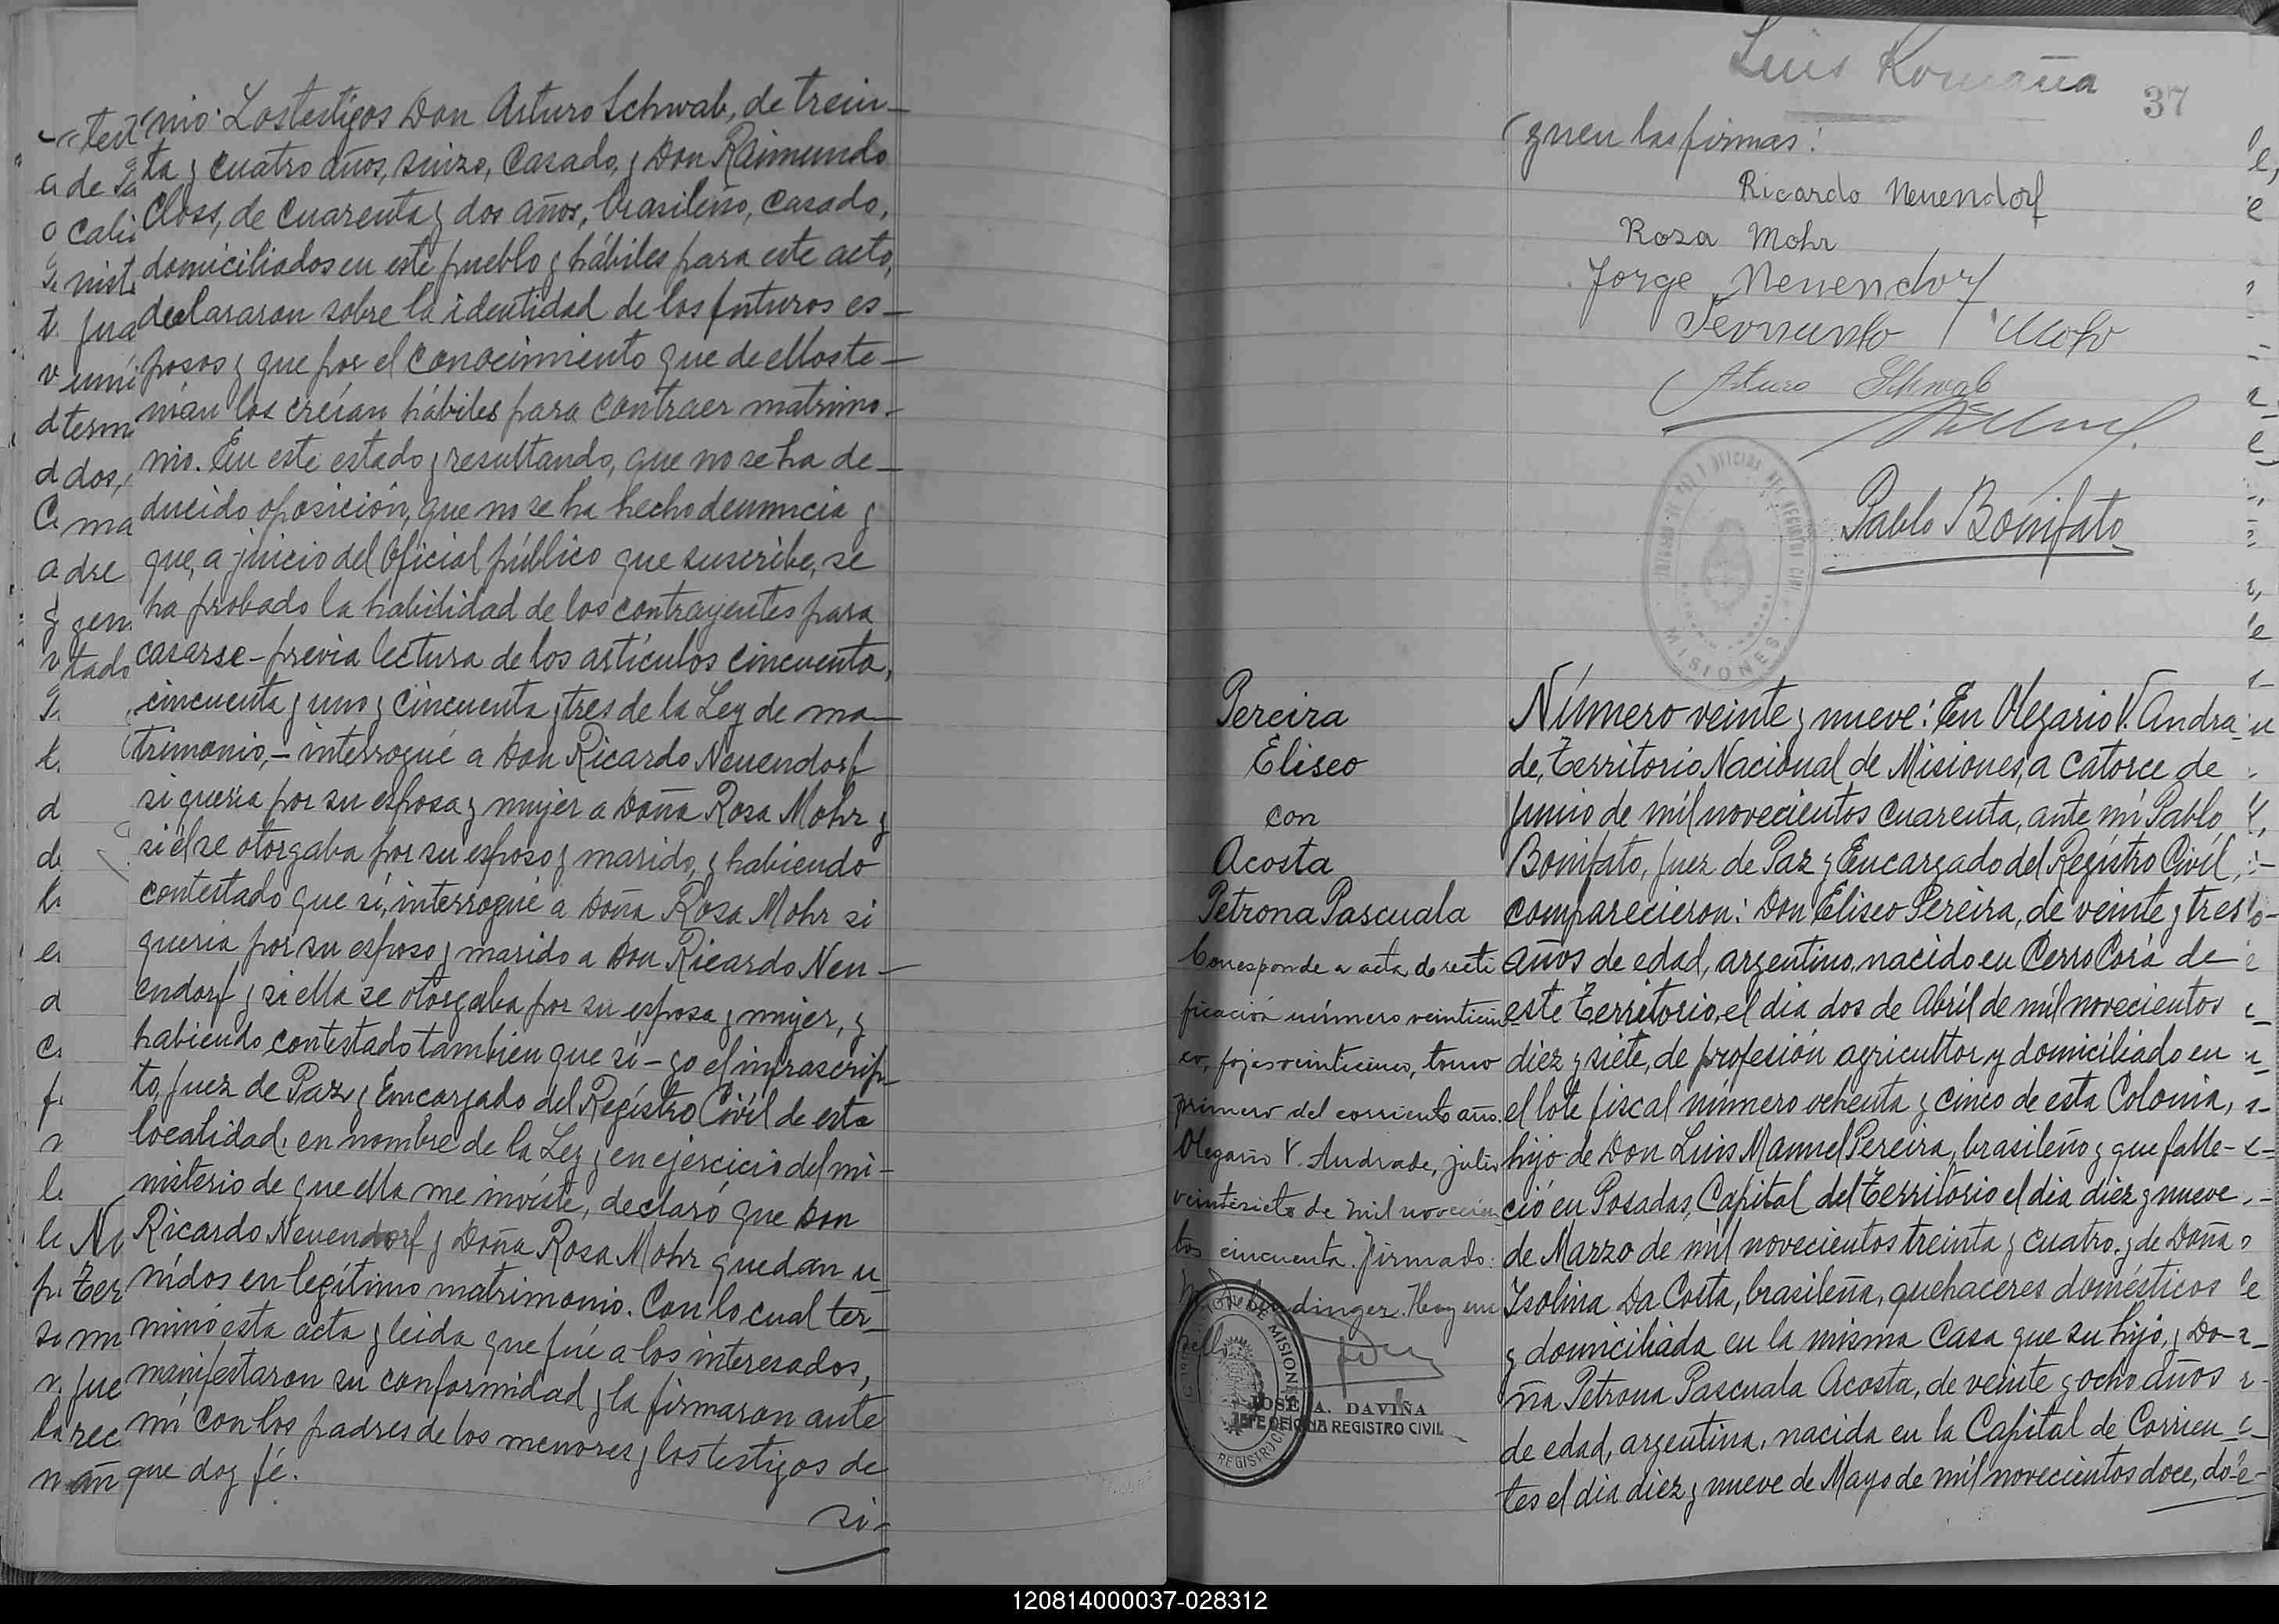 nio: Los testigos Don Arturo Schwab, de trein-
ta y cuatro años, suizo, casado, y Don Raimundo
Closs, de cuarenta y dos años, brasileño, casado,
domiciliados en este pueblo y hábiles para este acto,
declararon sobre la identidad de los futuros es-
posos y que por el conocimiento que de ellos te-
nían los creían hábiles para contraer matrimo-
nio. En este estado y resultando, que no se ha de-
ducido oposición, que no se ha hecho denuncia y
que, a juicio del Oficial público que suscribe, se
ha probado la habilidad de los contrayentes para
casarse - previa lectura de los artículos cincuenta,
cincuenta y uno y cincuenta y tres de la Ley de ma-
trimonio, - interrogué a Don Ricardo Neuendorf
si quería por su esposa y mujer a Doña Rosa Mohr y
si él se otorgaba por su esposo y marido, y habiendo
contestado que sí, interrogué a Doña Rosa Mohr si
quería por su esposo y marido a Don Ricardo Neu-
endorf y si ella se otorgaba por su esposa y mujer, y
habiendo contestado también que sí - yo el infrascrip-
to, Juez de Paz y Encargado del Registro Civil de esta
localidad, en nombre de la Ley y en ejercicio del mi-
nisterio de que ella me inviste, declaró que Don
Ricardo Neuendorf y Doña Rosa Mohr quedan u-
nidos en legítimo matrimonio. Con lo cual ter-
minó esta acta y leída que fué a los interesados,
manifestaron su conformidad y la firmaron ante
mí con los padres de los menores y los testigos de
que doy fé.
si-
Luis Romaña
37
guen las firmas:
Ricardo Neuendorf
Rosa Mohr
Jorge Neuendorf
Fernando Mohr
Arturo Schwab
Pablo Bonifato
MISIONES
Pereira
Eliseo
con
Acosta
Petrona Pascuala
Corresponde a acta de recti
ficación número veinticin-
co, fojas veinticinco, tomo
primero del corriente año.
Olegario V. Andrade, julio
veintisiete de mil novecien
tos cincuenta. Firmado:
dinger. Hay un
sello
JOSE A. DAVIÑA
JEFE OFICINA REGISTRO CIVIL
Número veinte y nueve: En Olegario V. Andra-
de, Territorio Nacional de Misiones, a catorce de
Junio de mil novecientos cuarenta, ante mí Pablo
Bonifato, Juez de Paz y Encargado del Registro Civil,
comparecieron: Don Eliseo Pereira, de veinte y tres
años de edad, argentino, nacido en Cerro Corá de
este Territorio, el día dos de Abril de mil novecientos
diez y siete, de profesión agricultor y domiciliado en
el lote fiscal número ochenta y cinco de esta Colonia,
hijo de Don Luis Manuel Pereira, brasileño y que falle-
ció en Posadas, Capital del Territorio el día diez y nueve
de Marzo de mil novecientos treinta y cuatro, y de Doña
Isolina Da Costa, brasileña, quehaceres domésticos
y domiciliada en la misma casa que su hijo, y Do-
ña Petrona Pascuala Acosta, de veinte y ocho años
de edad, argentina, nacida en la Capital de Corrien-
tes el día diez y nueve de Mayo de mil novecientos doce, do-
120814000037-028312